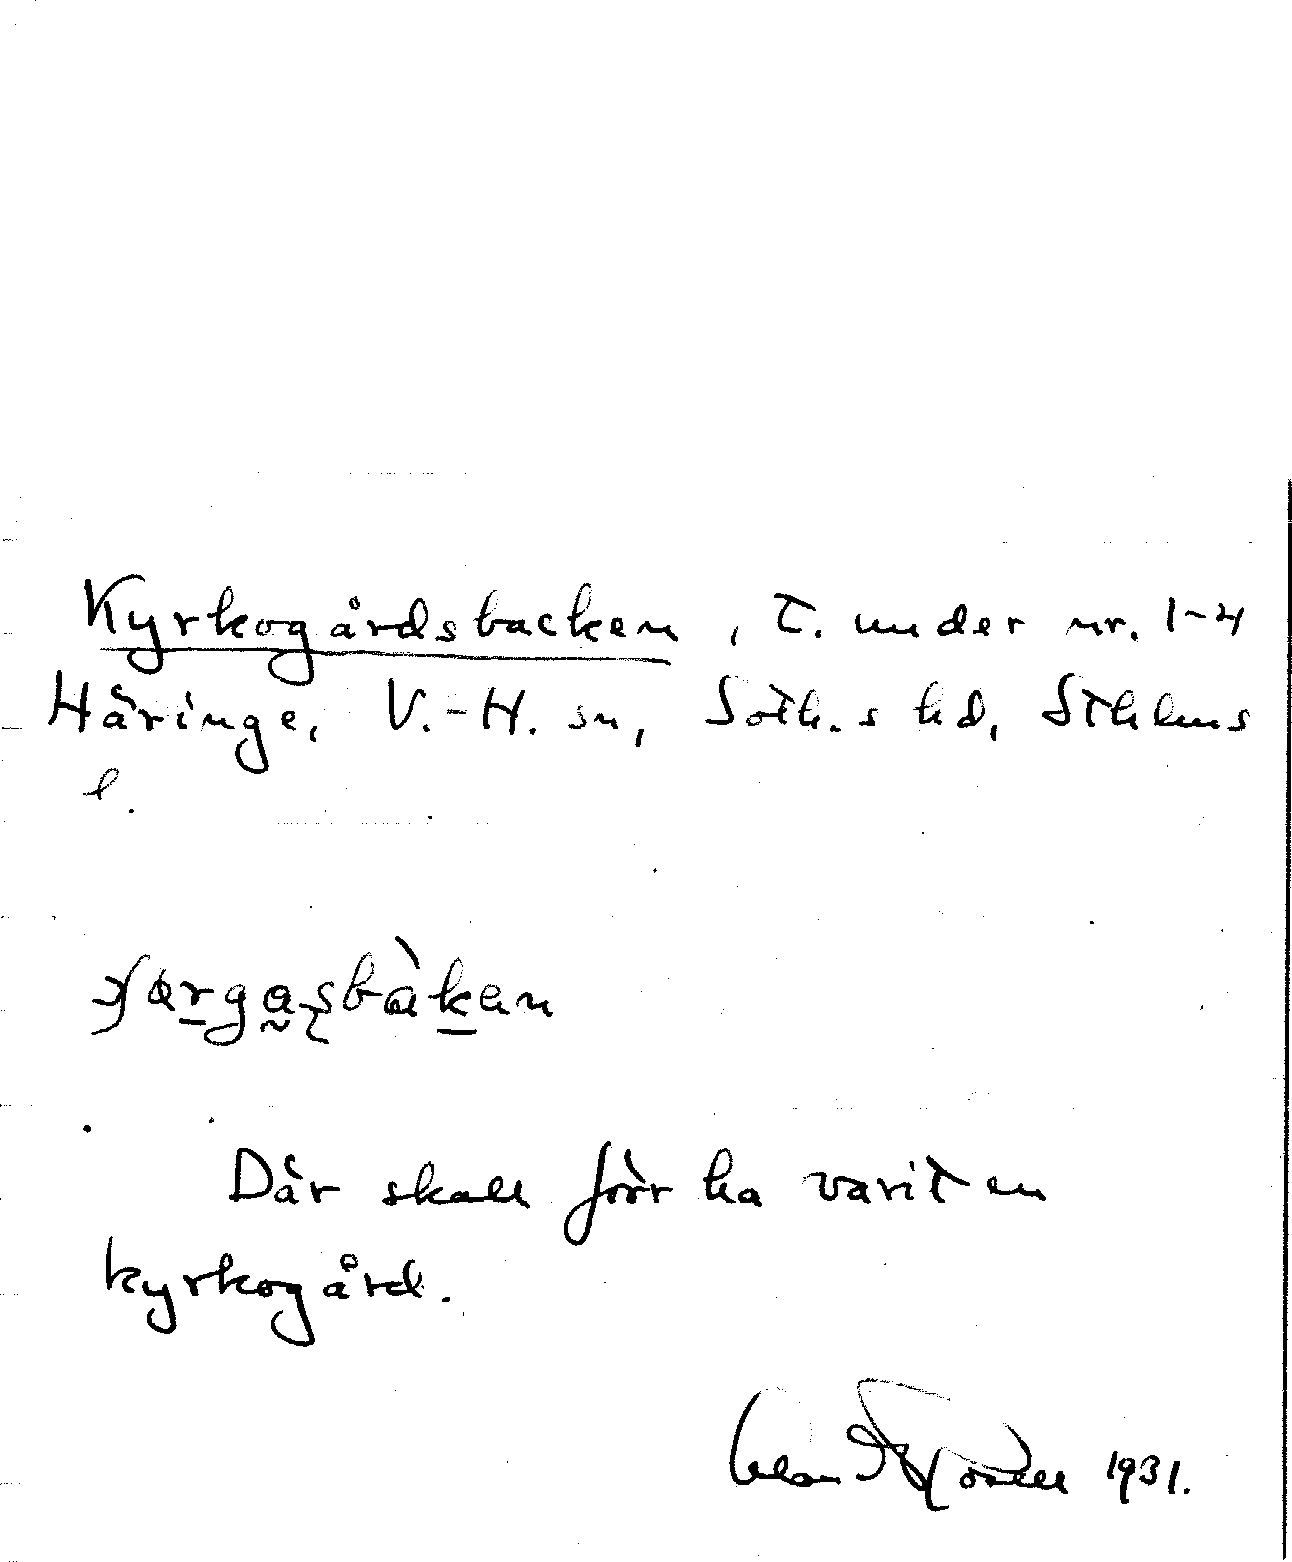 Kyrkogårdsbacken, t. under nr. 1-4
Häringe, V.-H. sn, Soth.s hd, Sthlms
l.
Där skall förr ha varit en
kyrkogård.
1931.